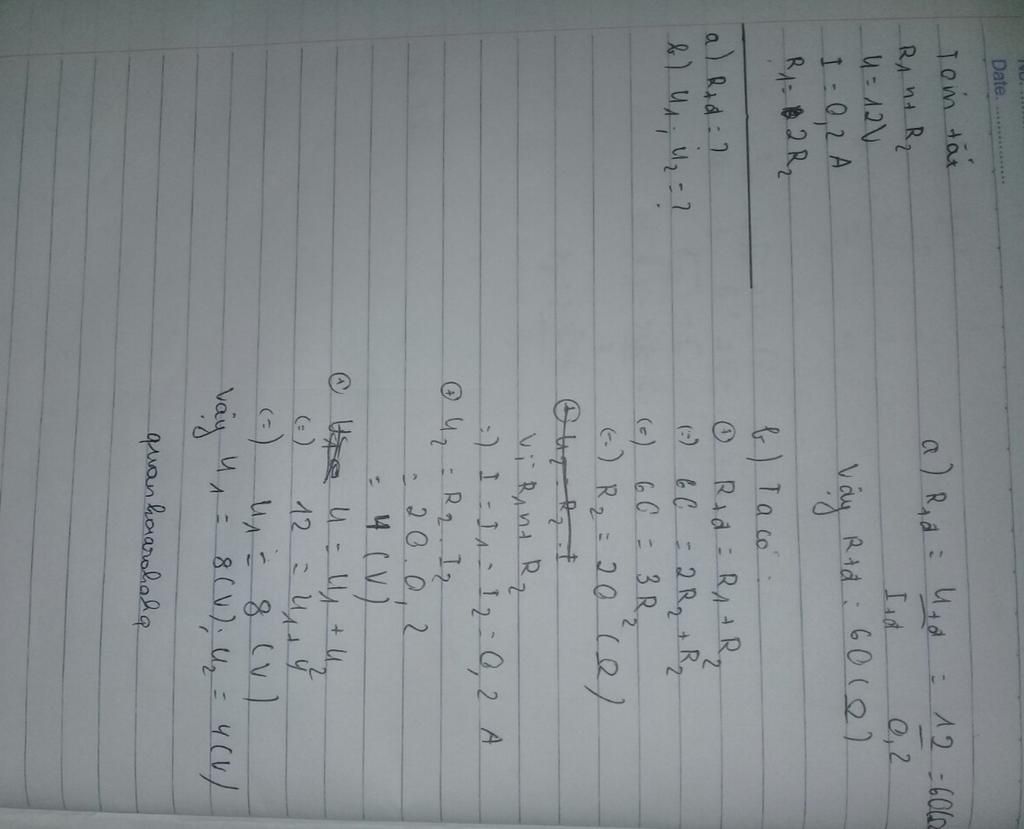 Date.
Tóm tắt
R1 nt R2
U = 12V
I = 0,2 A
R1 = 2R2
a) Rtđ = ?
b) U1, U2 = ?
a) Rtđ = Utđ / Itđ = 12 / 0,2 = 60Ω
Vậy Rtđ : 60 (Ω)
b) Ta có :
+ Rtđ = R1 + R2
(=) 60 = 2R2 + R2
(=) 60 = 3R2
(=) R2 = 20 (Ω)
+ U2 = R2 . I
Vì R1 nt R2
=) I = I1 = I2 = 0,2 A
+ U2 = R2 . I2
= 20 . 0,2
= 4 (V)
+ U = U1 + U2
(=) 12 = U1 + 4
(=) U1 = 8 (V)
Vậy U1 = 8 (V), U2 = 4 (V)